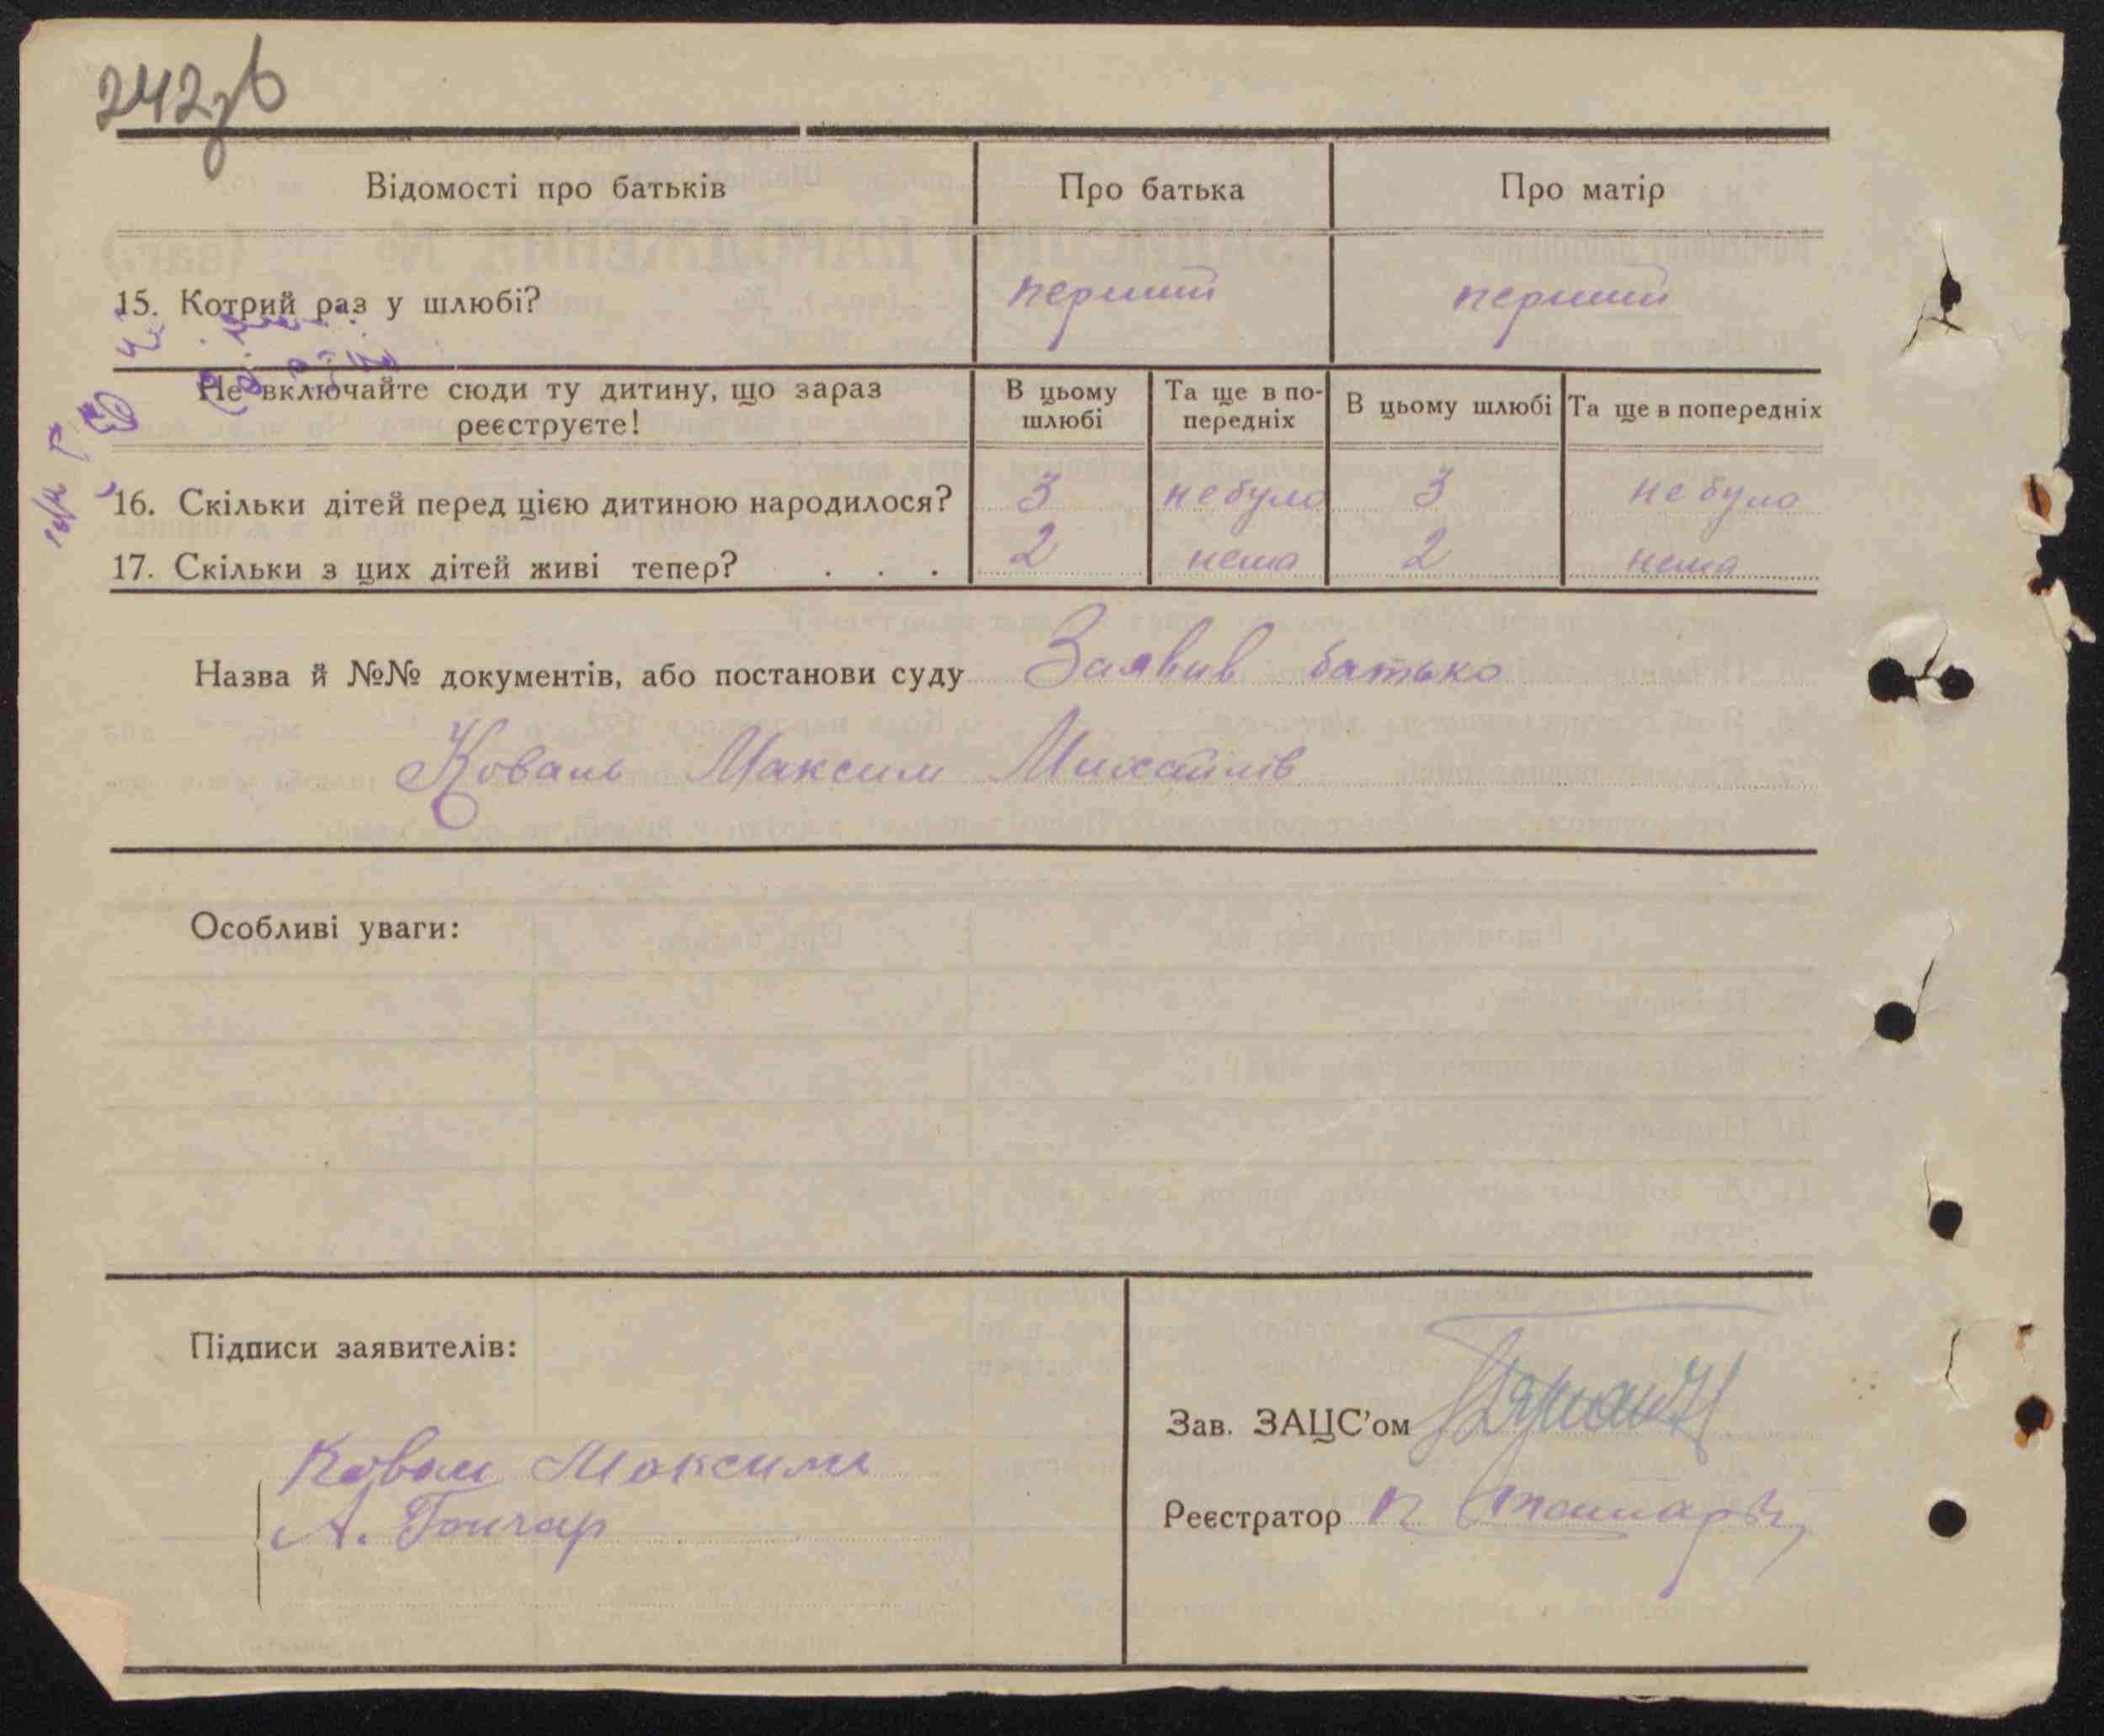 242зв
Відомості про батьків Про батька Про матір
15. Котрий раз у шлюбі? перший перший
Не включайте сюди ту дитину, що зараз реєструєте! В цьому шлюбі Та ще в попередніх В цьому шлюбі Та ще в попередніх
16. Скільки дітей перед цією дитиною народилося? 3 небуло 3 небуло
17. Скільки з цих дітей живі тепер? . . . 2 нема 2 нема
Назва й №№ документів, або постанови суду Заявив батько
Коваль Максим Михайлів
Особливі уваги:
Підписи заявителів:
Коваль Максим
А. Гончар
Зав. ЗАЦС'ом
Реєстратор П